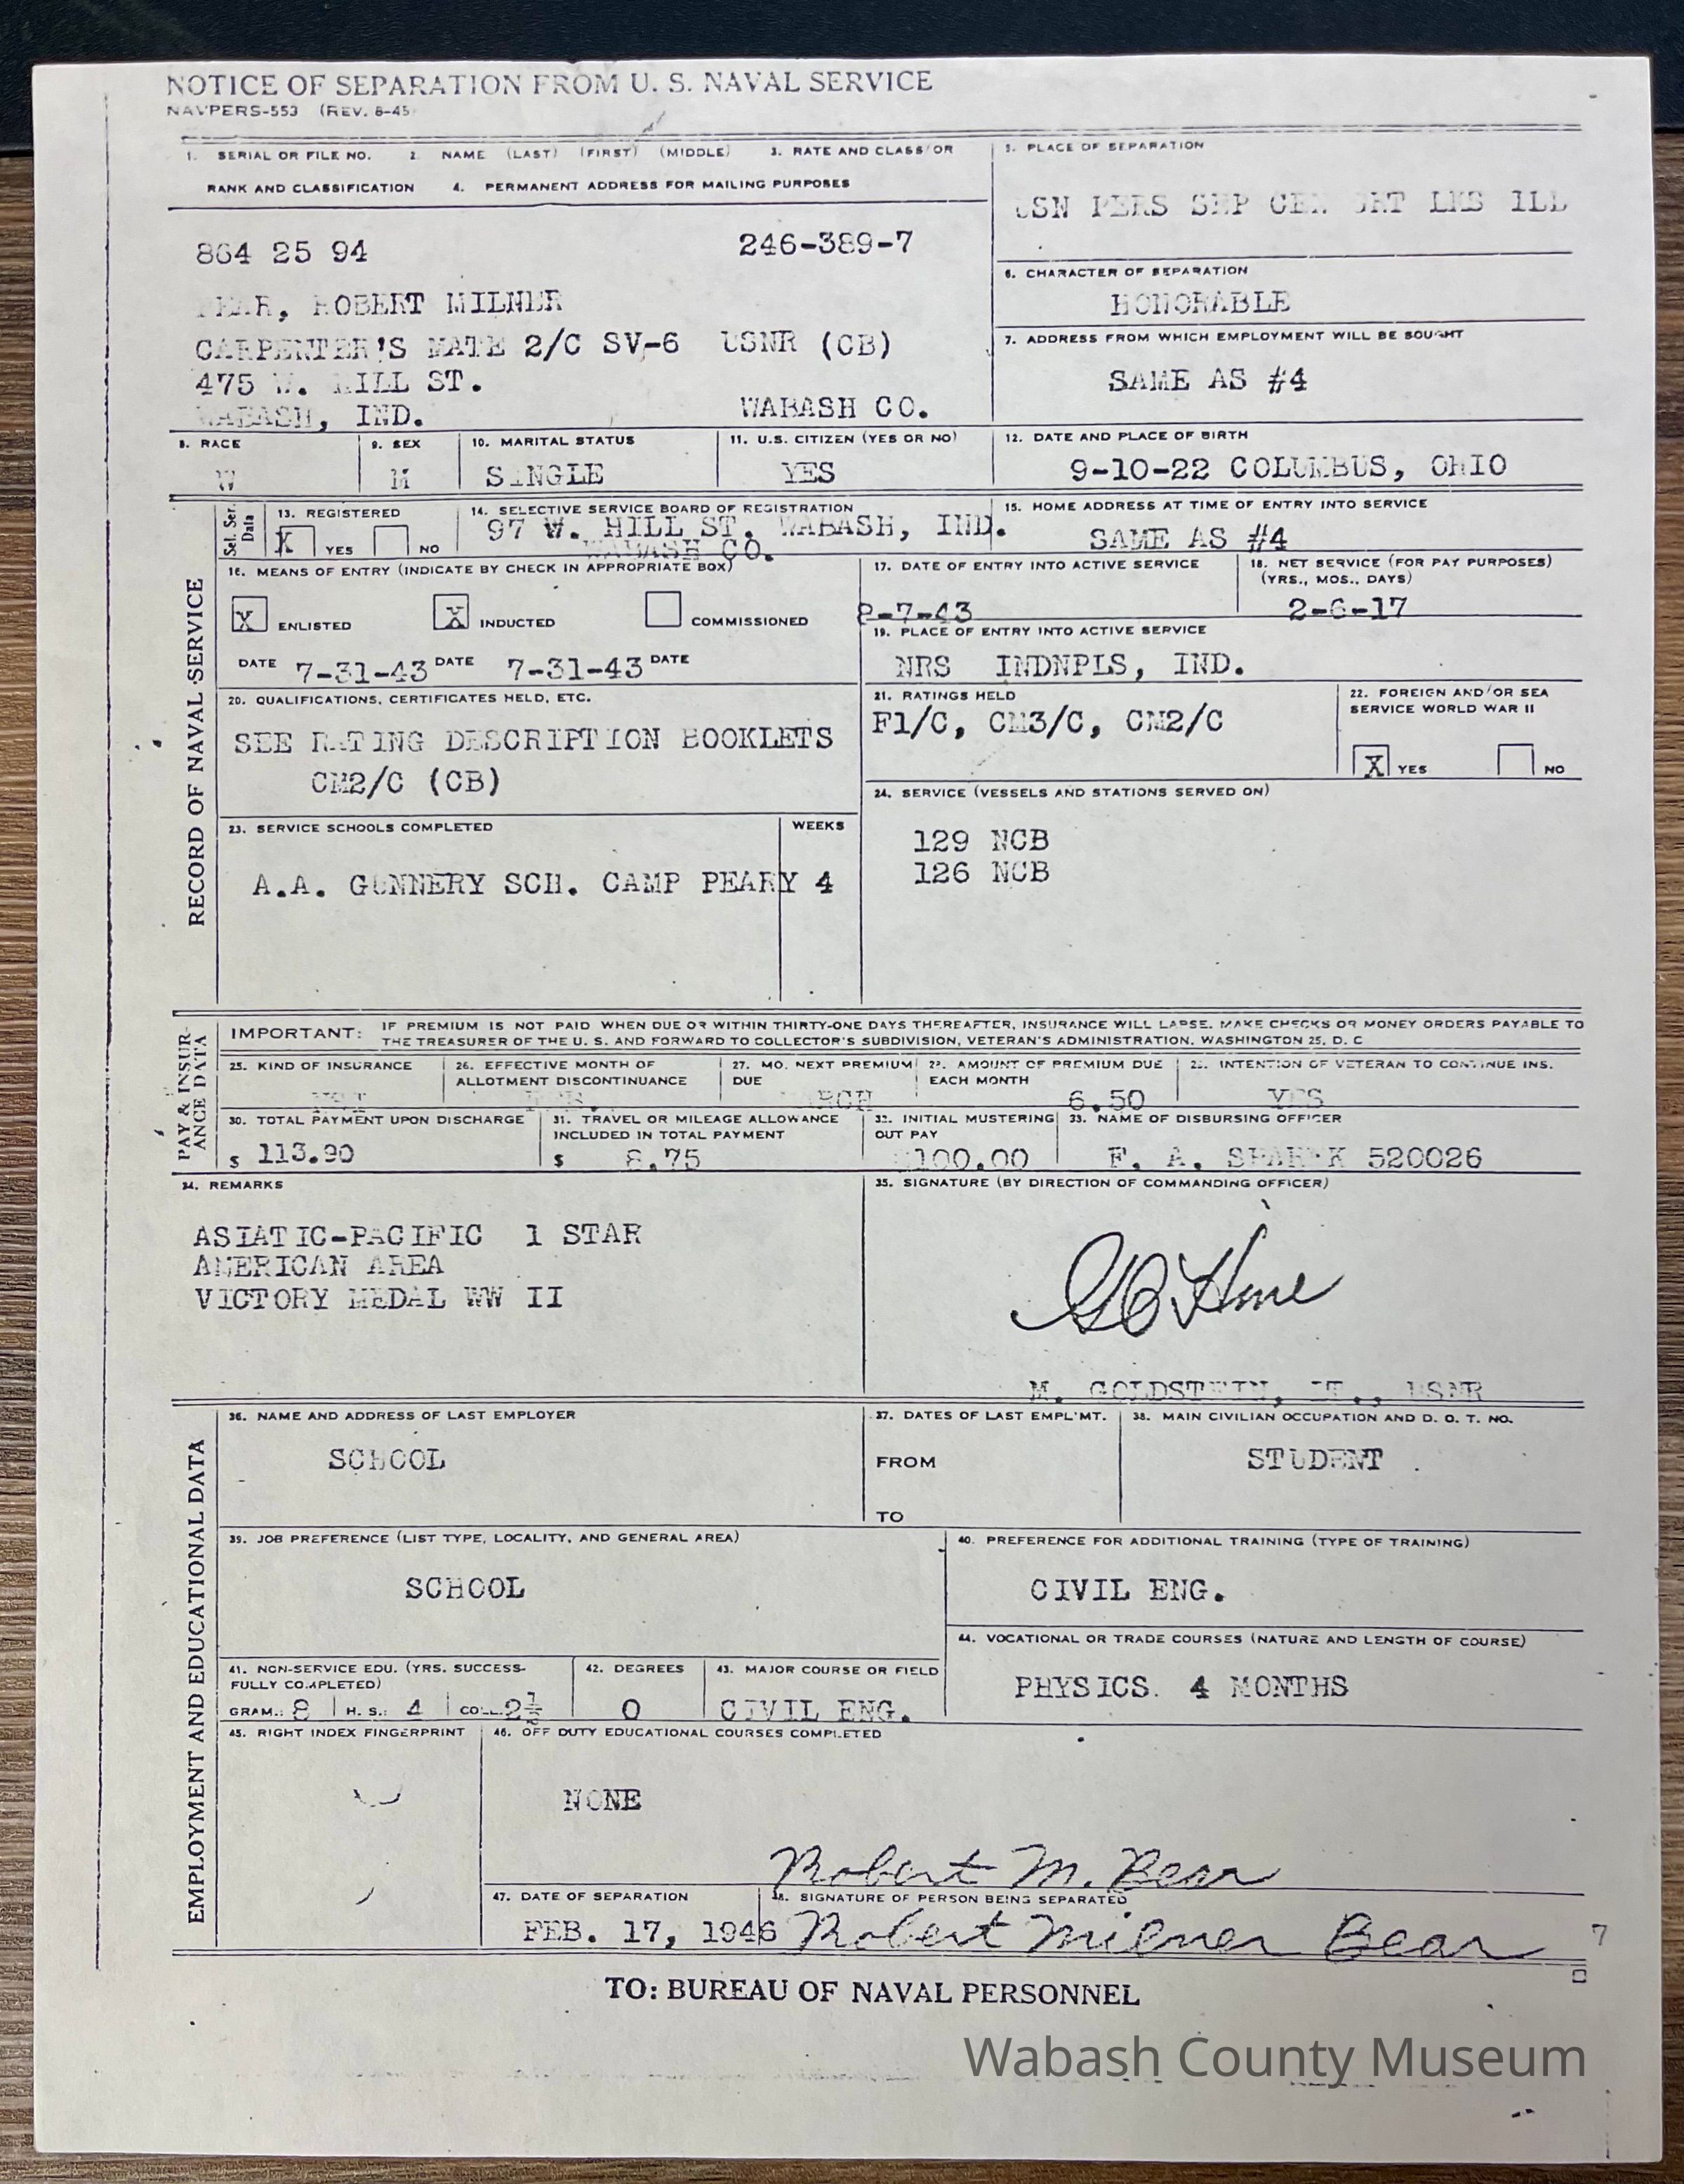 NOTICE OF SEPARATION FROM U. S. NAVAL SERVICE
NAVPERS-553 (REV. 8-45)
1. SERIAL OR FILE NO. 2. NAME (LAST) (FIRST) (MIDDLE) 3. RATE AND CLASS/OR
RANK AND CLASSIFICATION 4. PERMANENT ADDRESS FOR MAILING PURPOSES
864 25 94 246-389-7
ROBERT MILNER
CARPENTER'S MATE 2/C SV-6 USNR (CB)
475 W. HILL ST.
WABASH, IND. WABASH CO.
5. PLACE OF SEPARATION
USN PERS SEP CEN. GRT LKS ILL
6. CHARACTER OF SEPARATION
HONORABLE
7. ADDRESS FROM WHICH EMPLOYMENT WILL BE SOUGHT
SAME AS #4
8. RACE
W
9. SEX
M
10. MARITAL STATUS
SINGLE
11. U.S. CITIZEN (YES OR NO)
YES
12. DATE AND PLACE OF BIRTH
9-10-22 COLUMBUS, OHIO
RECORD OF NAVAL SERVICE
Sel. Ser. Data
13. REGISTERED
X YES NO
14. SELECTIVE SERVICE BOARD OF REGISTRATION
97 W. HILL ST. WABASH, IND.
WABASH CO.
15. HOME ADDRESS AT TIME OF ENTRY INTO SERVICE
SAME AS #4
16. MEANS OF ENTRY (INDICATE BY CHECK IN APPROPRIATE BOX)
X ENLISTED X INDUCTED COMMISSIONED
DATE 7-31-43 DATE 7-31-43 DATE
17. DATE OF ENTRY INTO ACTIVE SERVICE
8-7-43
18. NET SERVICE (FOR PAY PURPOSES)
(YRS., MOS., DAYS)
2-6-17
19. PLACE OF ENTRY INTO ACTIVE SERVICE
NRS INDNPLS, IND.
20. QUALIFICATIONS, CERTIFICATES HELD, ETC.
SEE RATING DESCRIPTION BOOKLETS
CM2/C (CB)
21. RATINGS HELD
F1/C, CM3/C, CM2/C
22. FOREIGN AND/OR SEA
SERVICE WORLD WAR II
X YES NO
23. SERVICE SCHOOLS COMPLETED WEEKS
A.A. GUNNERY SCH. CAMP PEARY 4
24. SERVICE (VESSELS AND STATIONS SERVED ON)
129 NCB
126 NCB
PAY & INSUR-
ANCE DATA
IMPORTANT: IF PREMIUM IS NOT PAID WHEN DUE OR WITHIN THIRTY-ONE DAYS THEREAFTER, INSURANCE WILL LAPSE. MAKE CHECKS OR MONEY ORDERS PAYABLE TO
THE TREASURER OF THE U. S. AND FORWARD TO COLLECTOR'S SUBDIVISION, VETERAN'S ADMINISTRATION, WASHINGTON 25, D. C
25. KIND OF INSURANCE
26. EFFECTIVE MONTH OF
ALLOTMENT DISCONTINUANCE
27. MO. NEXT PREMIUM
DUE
28. AMOUNT OF PREMIUM DUE
EACH MONTH
6.50
29. INTENTION OF VETERAN TO CONTINUE INS.
YES
30. TOTAL PAYMENT UPON DISCHARGE
$ 113.90
31. TRAVEL OR MILEAGE ALLOWANCE
INCLUDED IN TOTAL PAYMENT
$ 8.75
32. INITIAL MUSTERING
OUT PAY
100.00
33. NAME OF DISBURSING OFFICER
F. A. 520026
34. REMARKS
ASIATIC-PACIFIC 1 STAR
AMERICAN AREA
VICTORY MEDAL WW II
35. SIGNATURE (BY DIRECTION OF COMMANDING OFFICER)
M. GOLDSTEIN, LT., USNR
EMPLOYMENT AND EDUCATIONAL DATA
36. NAME AND ADDRESS OF LAST EMPLOYER
SCHOOL
37. DATES OF LAST EMPL'MT.
FROM
TO
38. MAIN CIVILIAN OCCUPATION AND D. O. T. NO.
STUDENT
39. JOB PREFERENCE (LIST TYPE, LOCALITY, AND GENERAL AREA)
SCHOOL
40. PREFERENCE FOR ADDITIONAL TRAINING (TYPE OF TRAINING)
CIVIL ENG.
41. NON-SERVICE EDU. (YRS. SUCCESS-
FULLY COMPLETED)
GRAM.: 8 H. S.: 4 COLL. 2½
42. DEGREES
0
43. MAJOR COURSE OR FIELD
CIVIL ENG.
44. VOCATIONAL OR TRADE COURSES (NATURE AND LENGTH OF COURSE)
PHYSICS. 4 MONTHS
45. RIGHT INDEX FINGERPRINT
46. OFF DUTY EDUCATIONAL COURSES COMPLETED
NONE
Robert M. Bear
47. DATE OF SEPARATION
FEB. 17, 1946
48. SIGNATURE OF PERSON BEING SEPARATED
Robert Milner Bear
7
TO: BUREAU OF NAVAL PERSONNEL
Wabash County Museum